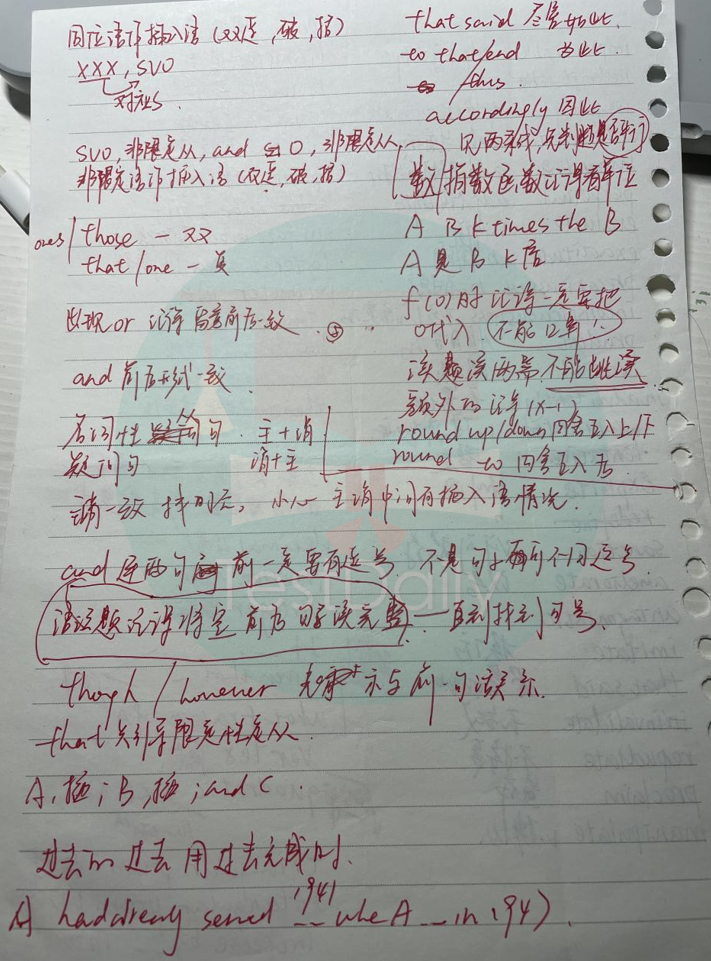 同位语作插入语(双逗,破,括)
XXX, SVO
对应S.
SVO,非限定从,and SVO,非限定从,
非限定语作插入语(双逗,破,括)
ones/those — 双
that/one — 单
出现or 记得 前后一致
and 前后形式一致.
名词性 句. 主+谓
疑问句 谓+主
主谓一致 找时态, 小心 主谓中间有插入语情况.
and 连两句 前一定要有逗号 不是句子 可不用逗号.
语法题记得将空 前后 句子读完整 一直到找到句号.
though/however 表示与前一句 关系.
that只引导限定性定从.
A,插;B,插;and C.
过去的过去用过去完成时.
A had already served 1941 -- whe A -- in 1942.
that said 尽管如此.
to that end 为此
thus
accordingly 因此
只两条线,先判断是否平行
数 指数函数记得看单位
A B k times the B
A是B k倍
f(0)时 记得一定要把
0代入. 不能口算!
读题读两篇 不能跳读
额外的 记得 (x-1)
round up/down 四舍五入上/下
round to 四舍五入去
TestDaily